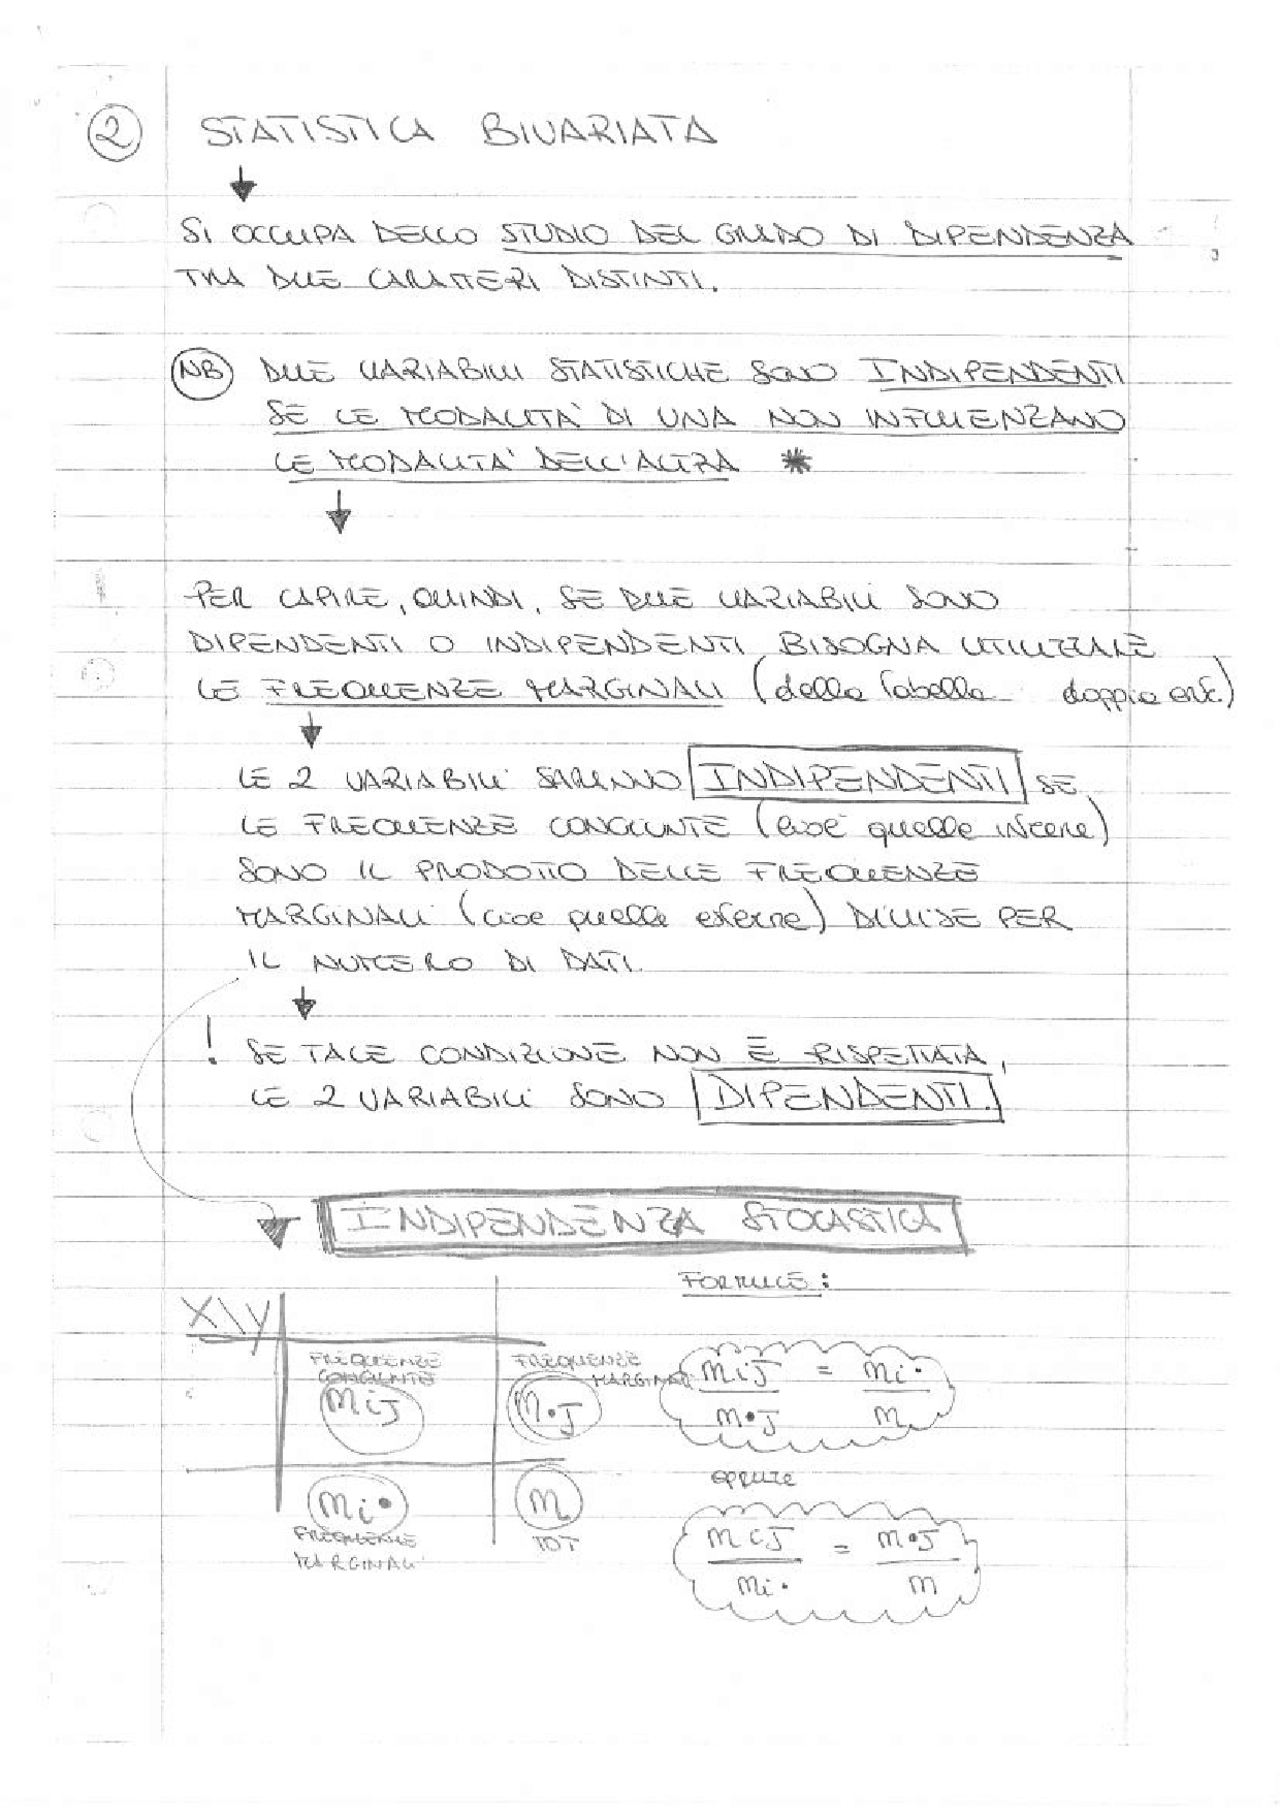 2 STATISTICA BIVARIATA
SI OCCUPA DELLO STUDIO DEL GRADO DI DIPENDENZA
TRA DUE CARATTERI DISTINTI.
NB DUE VARIABILI STATISTICHE SONO INDIPENDENTI
SE LE MODALITA' DI UNA NON INFLUENZANO
LE MODALITA' DELL'ALTRA *
PER CAPIRE, QUINDI, SE DUE VARIABILI SONO
DIPENDENTI O INDIPENDENTI BISOGNA UTILIZZARE
LE FREQUENZE MARGINALI (della Tabella doppia ent.)
LE 2 VARIABILI SARANNO INDIPENDENTI SE
LE FREQUENZE CONGIUNTE (cioè quelle interne)
SONO IL PRODOTTO DELLE FREQUENZE
MARGINALI (cioè quelle esterne) DIVISE PER
IL NUMERO DI DATI.
! SE TALE CONDIZIONE NON È RISPETTATA,
LE 2 VARIABILI SONO DIPENDENTI.
INDIPENDENZA STOCASTICA
FORMULE:
X\Y
FREQUENZE CONGIUNTE
nij
FREQUENZE MARGINALI
n•j
nij / n•j = ni• / n
OPPURE
ni•
FREQUENZE MARGINALI
n
TOT
nij / ni• = n•j / n